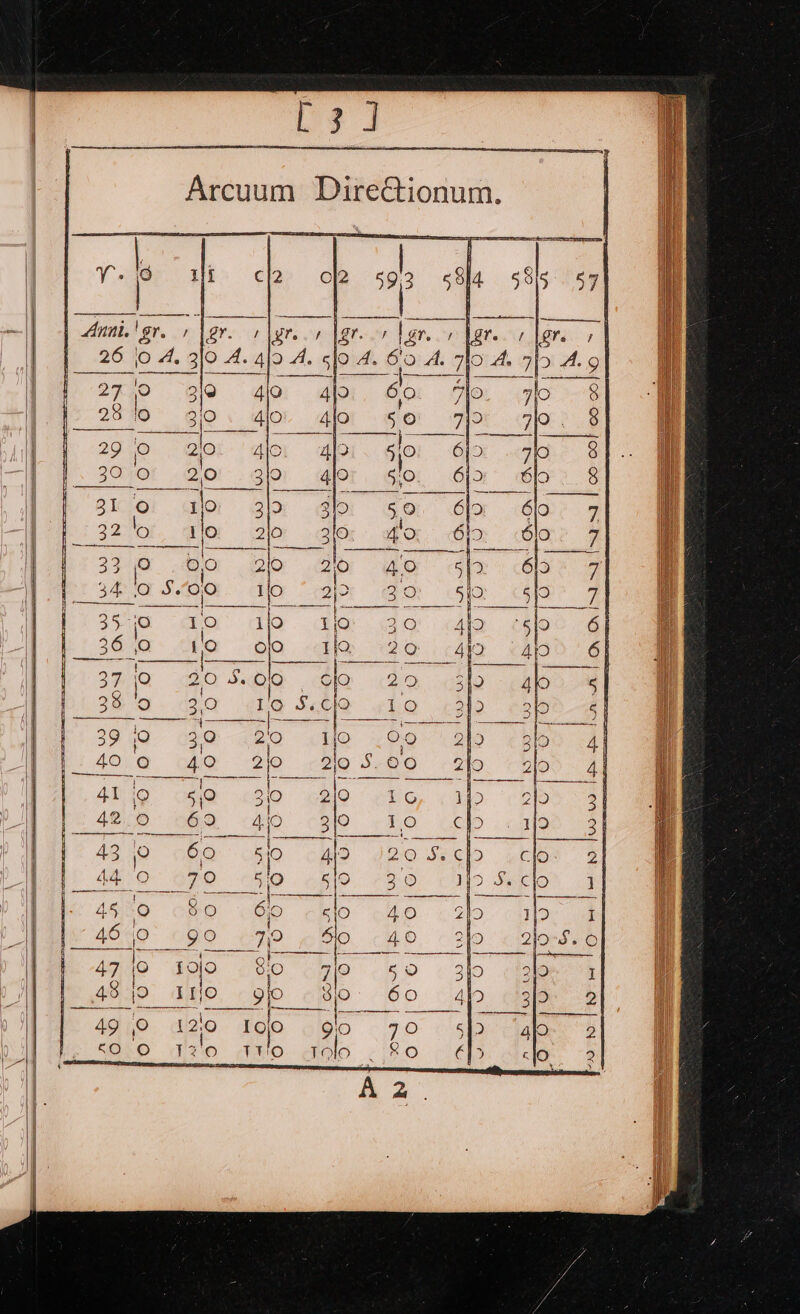 [ 3 ]
Arcuum Directionum.
♈. 0 1 1 0 2 0 2 59 3 58 4 58 5 57
Anni. gr. ′ gr. ′ gr. ′ gr. ′ gr. ′ gr. ′ gr. ′
26 0 A. 3 0 A. 4 0 A. 5 0 A. 6 0 A. 7 0 A. 7 0 A. 9
27 0 3 0 4 0 4 0 6 0 7 0 7 0 8
28 0 3 0 4 0 4 0 5 0 7 0 7 0 8
29 0 2 0 4 0 4 0 5 0 6 0 7 0 8
30 0 2 0 3 0 4 0 5 0 6 0 6 0 8
31 0 1 0 3 0 3 0 5 0 6 0 6 0 7
32 0 1 0 2 0 3 0 4 0 6 0 6 0 7
33 0 0 0 2 0 2 0 4 0 5 0 6 0 7
34 0 S. 0 0 1 0 2 0 3 0 5 0 5 0 7
35 0 1 0 1 0 1 0 3 0 4 0 5 0 6
36 0 1 0 0 0 1 0 2 0 4 0 4 0 6
37 0 2 0 S. 0 0 0 0 2 0 3 0 4 0 5
38 0 3 0 1 0 S. 0 0 1 0 3 0 3 0 5
39 0 3 0 2 0 1 0 0 0 2 0 3 0 4
40 0 4 0 2 0 2 0 S. 0 0 2 0 2 0 4
41 0 5 0 3 0 2 0 1 0 1 0 2 0 3
42 0 6 0 4 0 3 0 1 0 0 0 1 0 3
43 0 6 0 5 0 4 0 2 0 S. 0 0 0 0 2
44 0 7 0 5 0 5 0 3 0 1 0 S. 0 0 1
45 0 8 0 6 0 5 0 4 0 2 0 1 0 1
46 0 9 0 7 0 6 0 4 0 3 0 2 0 S. 0
47 0 10 0 8 0 7 0 5 0 3 0 3 0 1
48 0 11 0 9 0 8 0 6 0 4 0 3 0 2
49 0 12 0 10 0 9 0 7 0 5 0 4 0 2
50 0 12 0 11 0 10 0 8 0 6 0 5 0 3
A 2